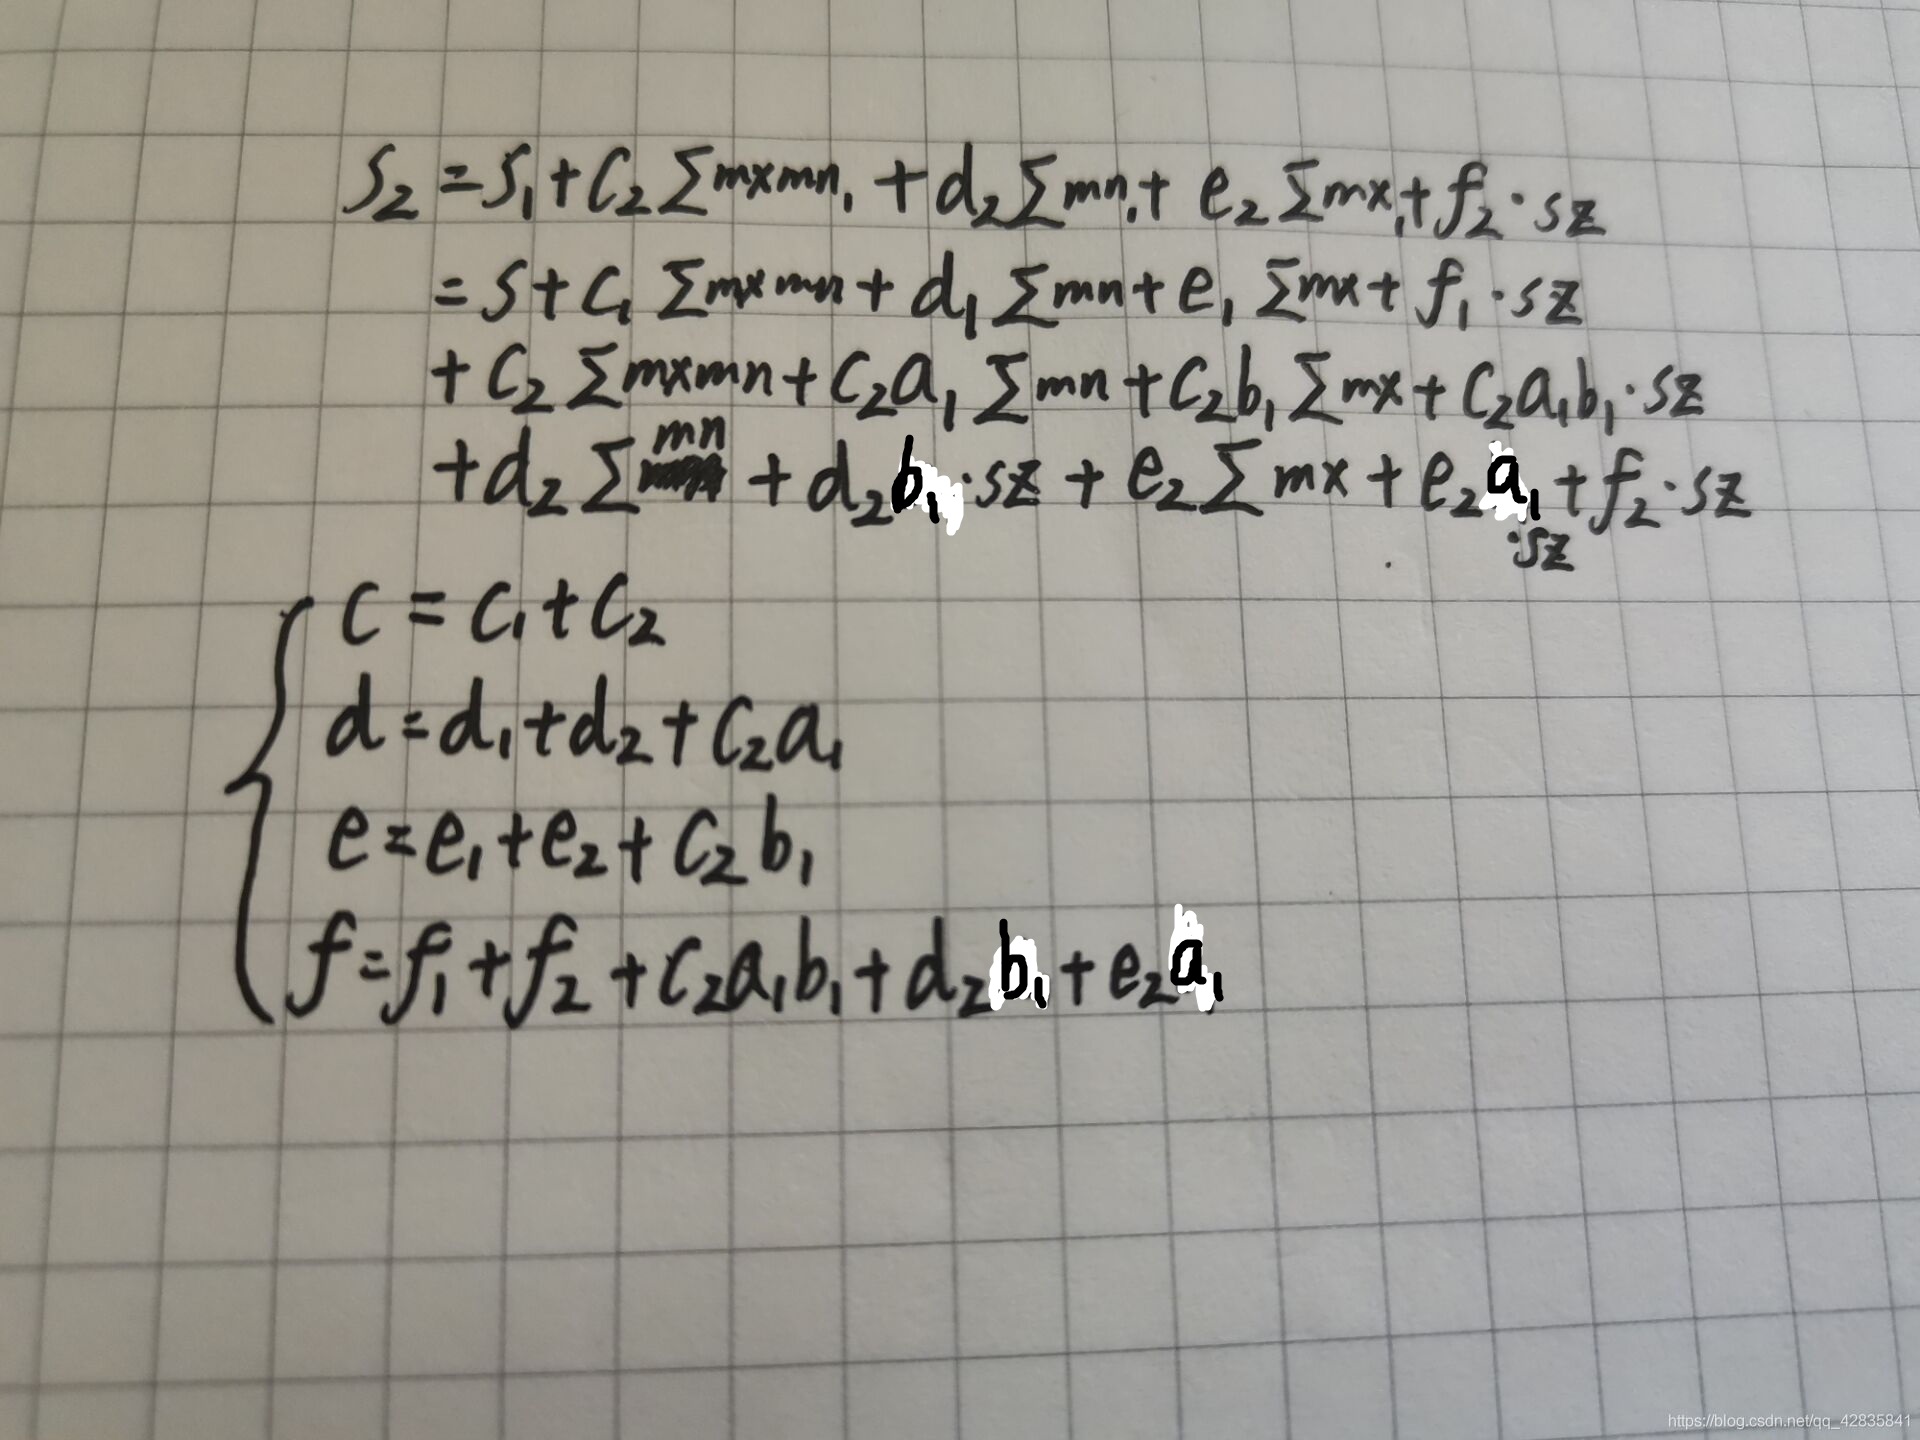 S₂ = S₁ + C₂ Σmxmn₁ + d₂ Σmn₁ + e₂ Σmx₁ + f₂·sz
= S + C₁ Σmxmn + d₁ Σmn + e₁ Σmx + f₁·sz
+ C₂ Σmxmn + C₂a₁ Σmn + C₂b₁ Σmx + C₂a₁b₁·sz
+ d₂ Σmn + d₂b₁·sz + e₂ Σmx + e₂a₁·sz + f₂·sz
c = c₁ + c₂
d = d₁ + d₂ + c₂a₁
e = e₁ + e₂ + c₂b₁
f = f₁ + f₂ + c₂a₁b₁ + d₂b₁ + e₂a₁
https://blog.csdn.net/qq_42835841